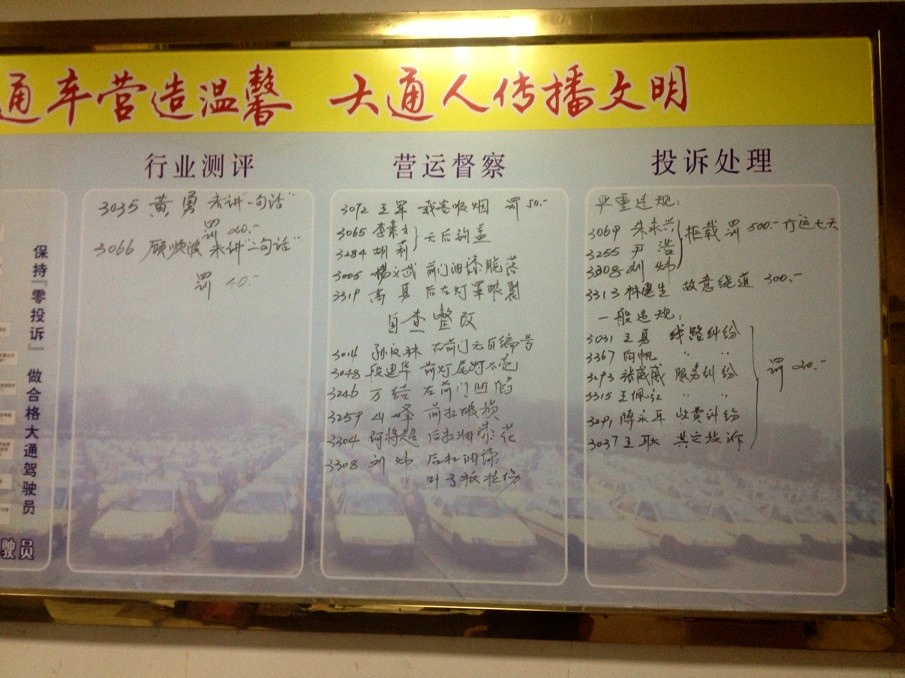 通车营造温馨 大通人传播文明
保持"零投诉" 做合格大通驾驶员
驶员
行业测评
3035 黄勇 未讲"一句话"
罚 20.-
3066 顾顺波 未讲"二句话"
罚 20.-
营运督察
3072 王军 载客吸烟 罚 50.-
3065
3284 胡莉
无后轮盖
3005 杨文武 前门油漆脱落
3319 后右灯罩眼裂
自查整改
3014 右前门无自编号
3048 前灯尾灯不亮
3246 万 左前门凹陷
3259 山峰 前杠破损
3304 后杠油漆
3308 刘 后杠油漆
叶子板
投诉处理
严重违规:
3069 朱永兴
3255 尹浩
3308 刘
拒载 罚 500.- 停运七天
3313 林建生 故意绕道 300.-
一般违规:
3031 王 线路纠纷
3367 〃 〃
3293 张威威 服务纠纷
3315 王佩红 〃 〃
3291 陈永年 收费纠纷
3037 王耿 其它投诉
罚 20.-